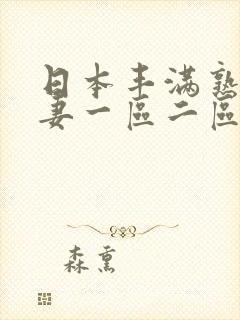 日本丰满熟
妻一區二區
森熏